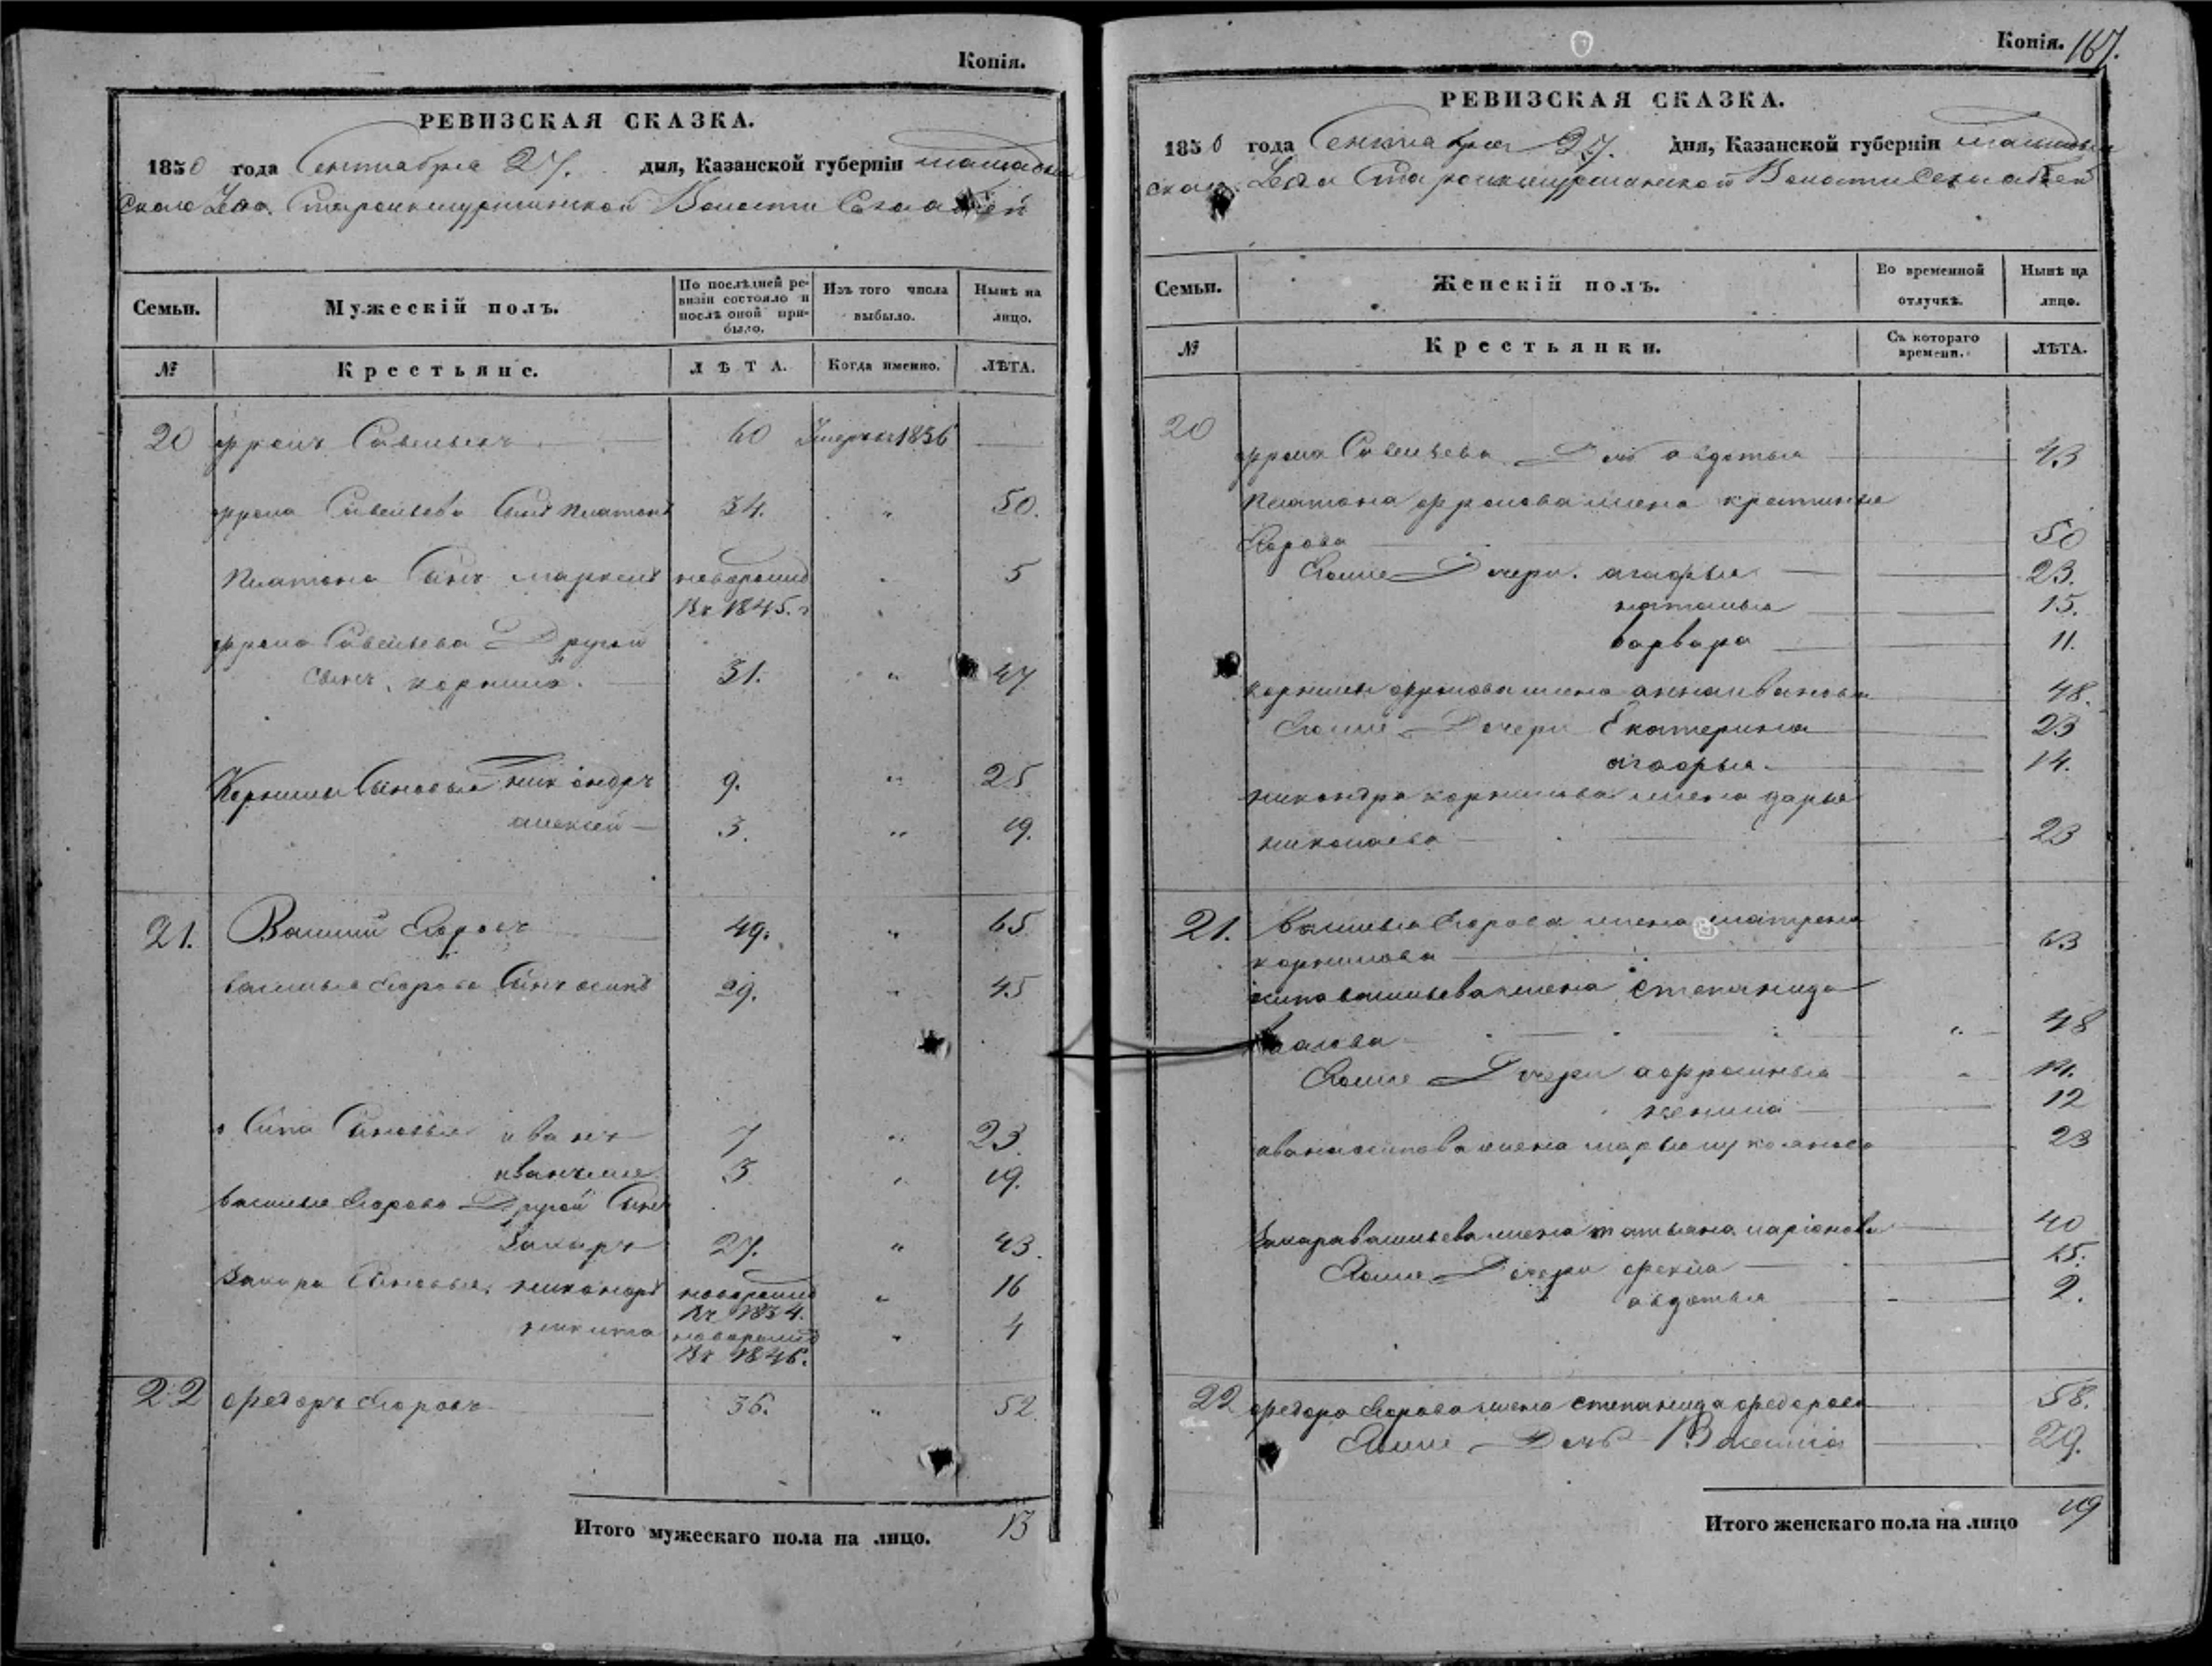 Копія.
РЕВИЗСКАЯ СКАЗКА.
1850 года Сентября 27. дня, Казанской губерніи
скаго Уезда Волости
Семьи. Мужескій полъ. По послѣдней ревизіи состояло и послѣ оной прибыло. Изъ того числа выбыло. Нынѣ на лицо.
№ Крестьяне. ЛѢТА. Когда именно. ЛѢТА.
20 фролъ Савельевъ 60 Умеръ въ 1836
фрола Савельева Сынъ платонъ 34. " 50.
платона Сынъ маркелъ новорожд " 5
Въ 1845. г "
фрола Савельева Другой
Сынъ корнилъ. 31. " 47
Корнилы Сыновья никондръ 9. " 25
алексей 3. " 19.
21. Василий Егоровъ 49. " 65
василья Егорова Сынъ осипъ 29. " 45
осипа Сыновья иванъ 7 " 23.
3 " 19.
василья Егорова Другой Сынъ
Захаръ 27. " 43.
Захара Сыновья, никоноръ новорожд " 16
Въ 1834.
никита новорожд " 4
Въ 1846.
22 федоръ Егоровъ 36. " 52.
Итого мужескаго пола на лицо. 13
Копія. 167.
РЕВИЗСКАЯ СКАЗКА.
1850 года Сентября 27. дня, Казанской губерніи
скаго Уезда Волости
Семьи. Женскій полъ. Во временной отлучкѣ. Нынѣ на лицо.
№ Крестьянки. Съ котораго времени. ЛѢТА.
20
фрола Савельева Дочь авдотья 43
платона фролова жена крестинья
Егорова 50
Ихже Дочери. агафья 23.
наталья 15.
варвара 11.
корнилы фролова жена анна иванова 48.
Ихже Дочери Екатерина 23
агафья. 14.
никондра корнилова жена дарья
николаева 23
21. василья Егорова жена матрена
корнилова 63
осипа васильева жена степанида
48
Ихже Дочери афросинья "
12
ивана осипова жена марья 23
Захара васильева жена татьяна ларіонова 40
Ихже Дочери фекла 15.
авдотья 2.
22 федора Егорова жена степанида федорова 58.
Ихже Дочь 29.
Итого женскаго пола на лицо 19